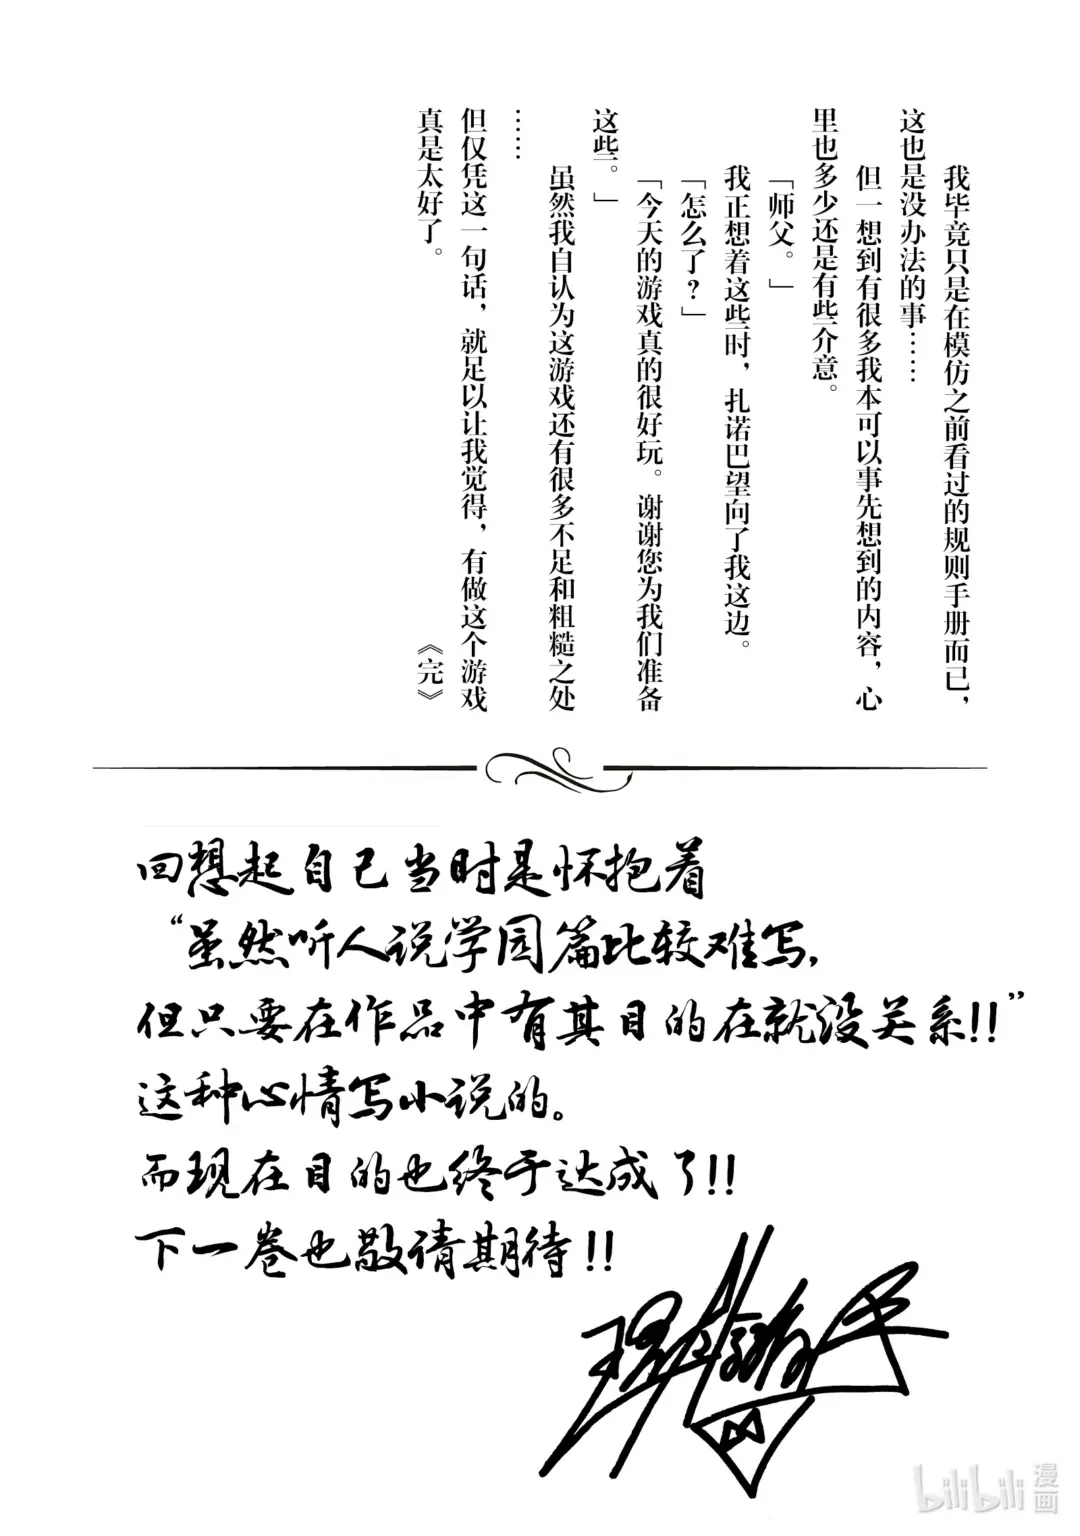 我毕竟只是在模仿之前看过的规则手册而已，
这也是没办法的事……
但一想到有很多我本可以事先想到的内容，心
里也多少还是有些介意。
「师父。」
我正想着这些时，扎诺巴望向了我这边。
「怎么了？」
「今天的游戏真的很好玩。谢谢您为我们准备
这些。」
虽然我自认为这游戏还有很多不足和粗糙之处
……
但仅凭这一句话，就足以让我觉得，有做这个游戏
真是太好了。
《完》
回想起自己当时是怀抱着
“虽然听人说学园篇比较难写，
但只要在作品中有其目的在就没关系!!”
这种心情写小说的。
而现在目的也终于达成了!!
下一卷也敬请期待!!
bilibili
漫画